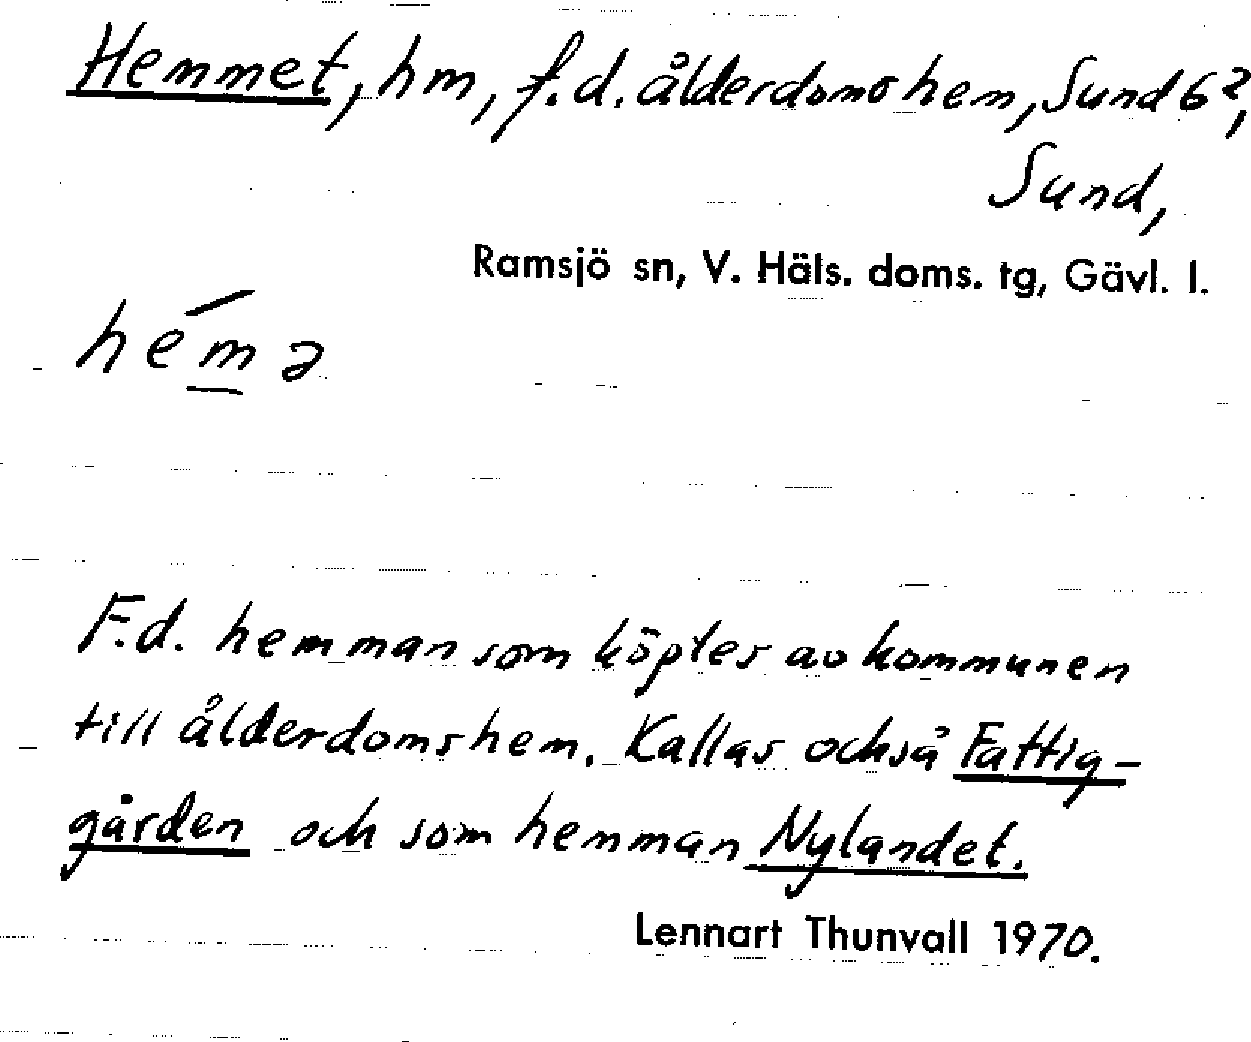 Hemmet, hm, f.d. ålderdomshem, Sund 6²,
Sund,
Ramsjö sn, V. Häls. doms. tg, Gävl. l.
hémə
F.d. hemman som köptes av kommunen
till ålderdomshem. Kallas också Fattig-
gården och som hemman Nylandet.
Lennart Thunvall 1970.